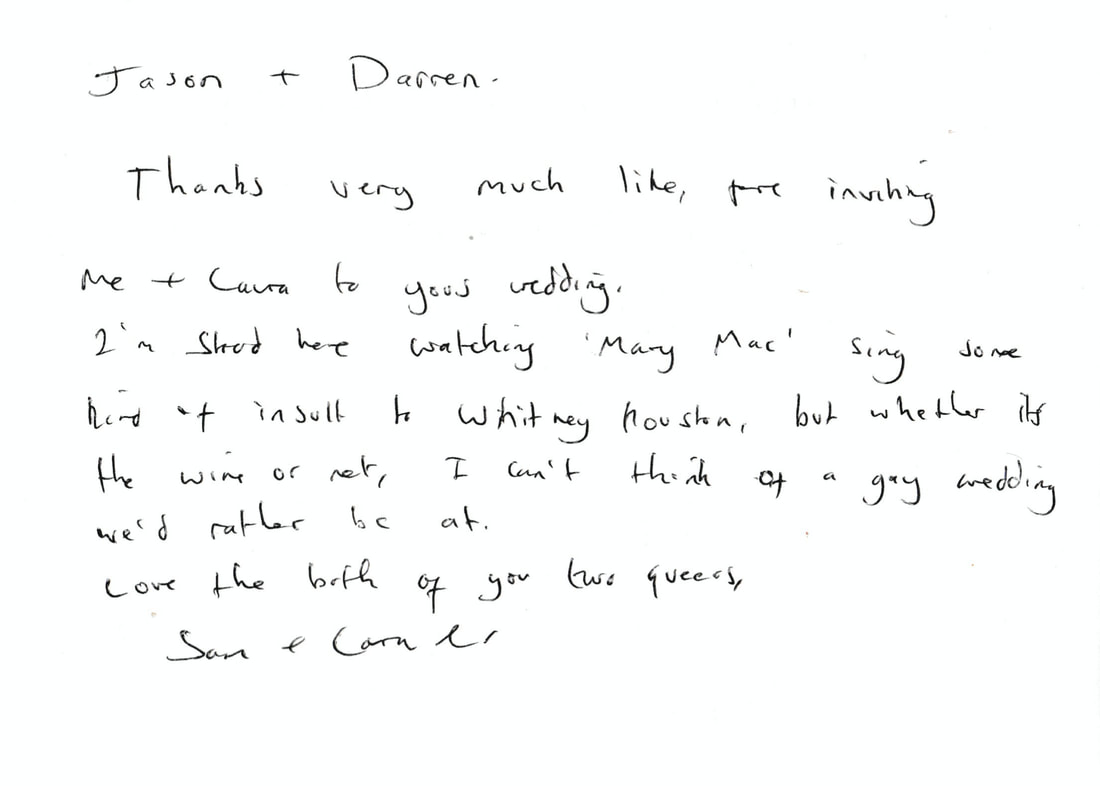 Jason + Darren.
Thanks very much like, for inviting
me + Cara to yous wedding.
I'm stood here watching 'Mary Mac' sing some
kind of insult to Whitney houston, but whether its
the wine or not, I can't think of a gay wedding
we'd rather be at.
Love the both of you two queers,
Sam + Cara